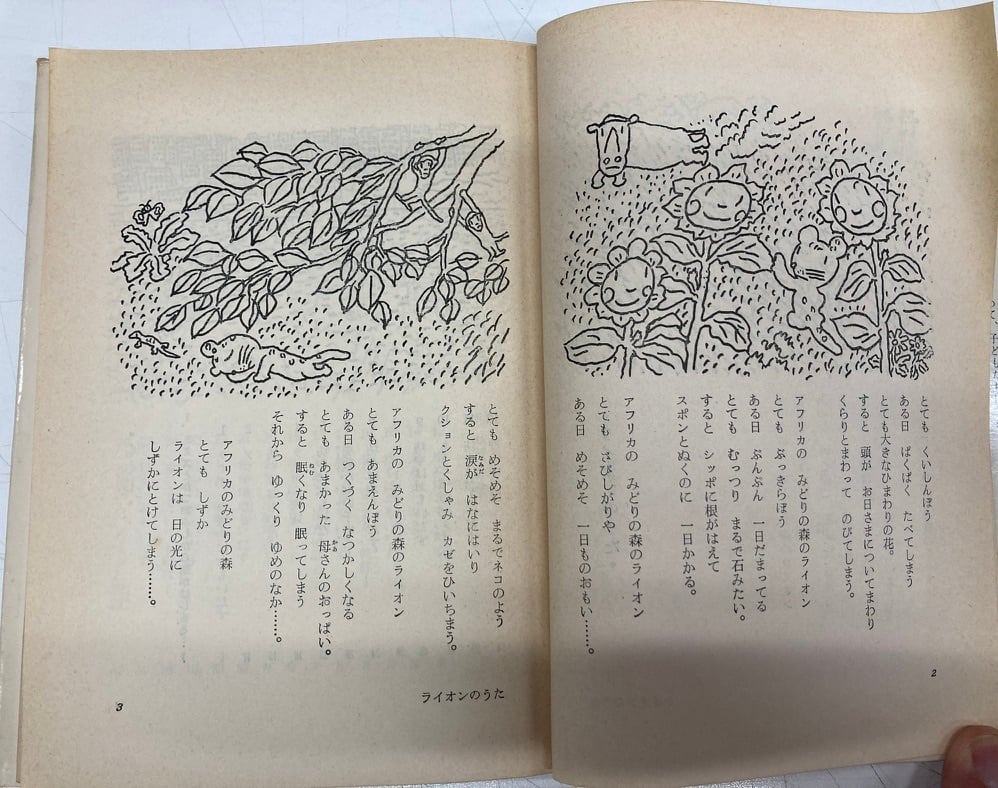 とても くいしんぼう
ある日 ぱくぱく たべてしまう
とても大きなひまわりの花。
すると 頭が お日さまについてまわり
くらりとまわって のびてしまう。
アフリカの みどりの森のライオン
とても ぶっきらぼう
ある日 ぷんぷん 一日だまってる
とても むっつり まるで石みたい。
すると シッポに根がはえて
スポンとぬくのに 一日かかる。
アフリカの みどりの森のライオン
とても さびしがりや
ある日 めそめそ 一日ものおもい……。
2
とても めそめそ まるでネコのよう
すると 涙が はなにはいり
クションとくしゃみ カゼをひいちまう。
アフリカの みどりの森のライオン
とても あまえんぼう
ある日 つくづく なつかしくなる
とても あまかった 母さんのおっぱい。
すると 眠くなり 眠ってしまう
それから ゆっくり ゆめのなか……。
アフリカのみどりの森
とても しずか
ライオンは 日の光に
しずかにとけてしまう……。
ライオンのうた
3